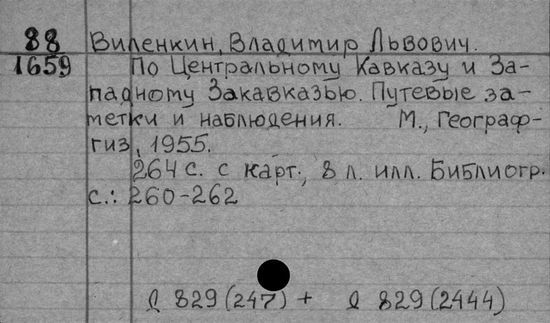 88 Виленкин, Владимир Львович.
1659 По Центральному Кавказу и За-
падному Закавказью. Путевые за-
метки и наблюдения. М., Географ-
гиз, 1955.
264 с. с карт., 8 л. илл. Библиогр.
с.: 260-262
л 829 (247) + л 829 (2444)